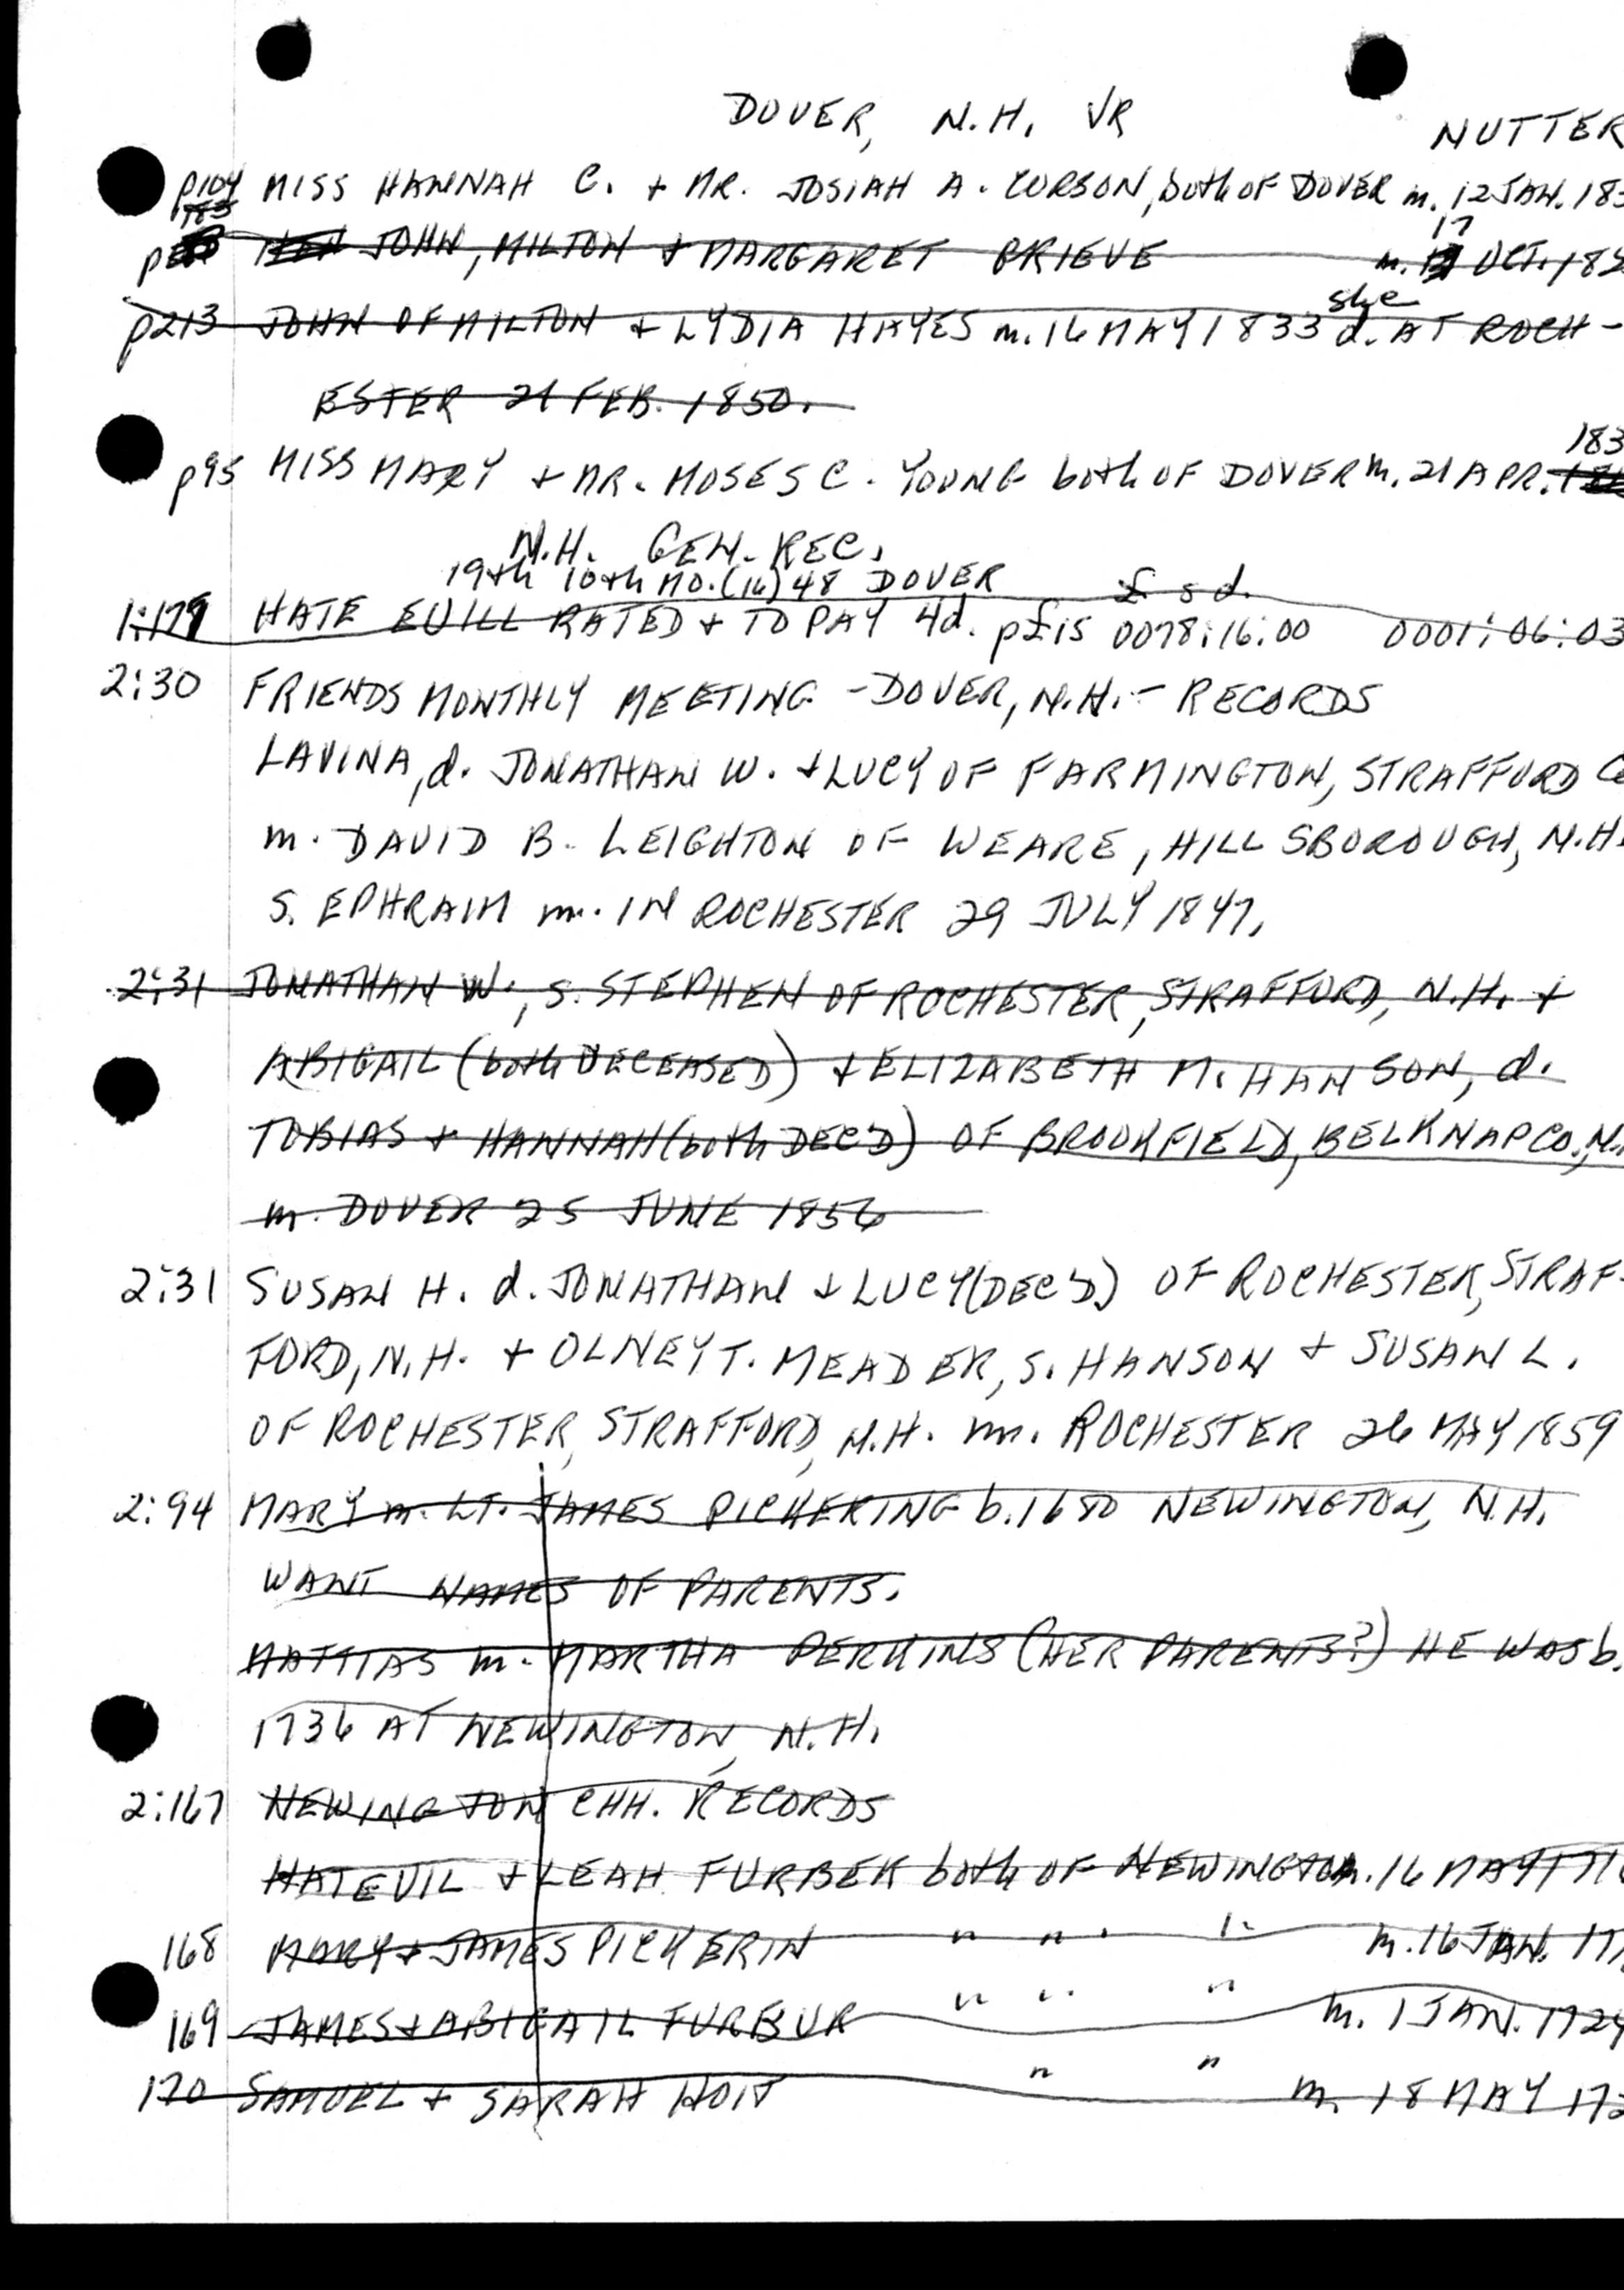 DOVER, N.H. VR
NUTTER
p104 MISS HANNAH C. + MR. JOSIAH A. CORSON, both OF DOVER m. 12 JAN. 183
JOHN, MILTON + MARGARET PRIEVE m. 17 OCT. 18
p213 JOHN OF MILTON + LYDIA HAYES m. 16 MAY 1833 she d. AT ROCH-
ESTER 21 FEB. 1850.
p95 MISS MARY + MR. MOSES C. YOUNG both OF DOVER m. 21 APR. 183
N.H. GEN. REC.
19th 10th MO. (16) 48 DOVER £ s d.
1:179 HATE EVILL RATED + TO PAY 4d. p£ is 0078:16:00 0001:06:03
2:30 FRIENDS MONTHLY MEETING - DOVER, N.H. - RECORDS
LAVINA, d. JONATHAN W. + LUCY OF FARMINGTON, STRAFFORD CO
m. DAVID B. LEIGHTON OF WEARE, HILLSBOROUGH, N.H.
S. EPHRAIM m. IN ROCHESTER 29 JULY 1847.
2:31 JONATHAN W., S. STEPHEN OF ROCHESTER, STRAFFORD, N.H. +
ABIGAIL (both DECEASED) + ELIZABETH M. HANSON, d.
TOBIAS + HANNAH (both DEC'D) OF BROOKFIELD, BELKNAP CO., N.H
m. DOVER 25 JUNE 1856
2:31 SUSAN H. d. JONATHAN + LUCY (DEC'D) OF ROCHESTER, STRAF-
FORD, N.H. + OLNEY T. MEADER, S. HANSON + SUSAN L.
OF ROCHESTER, STRAFFORD, N.H. m. ROCHESTER 26 MAY 1859
2:94 MARY m. LT. JAMES PICKERING b. 1680 NEWINGTON, N.H.
WANT NAMES OF PARENTS.
HATTIAS m. MARTHA PERKINS (HER PARENTS?) HE WAS b.
1736 AT NEWINGTON, N.H.
2:167 NEWINGTON CHH. RECORDS
HATEVIL + LEAH FURBER both OF NEWINGTON m. 16 MAY 171
168 MARY + JAMES PICKERIN " " " m. 16 JAN. 17
169 JAMES + ABIGAIL FURBUR " " " m. 1 JAN. 1724
170 SAMUEL + SARAH HOIT " " m. 18 MAY 172